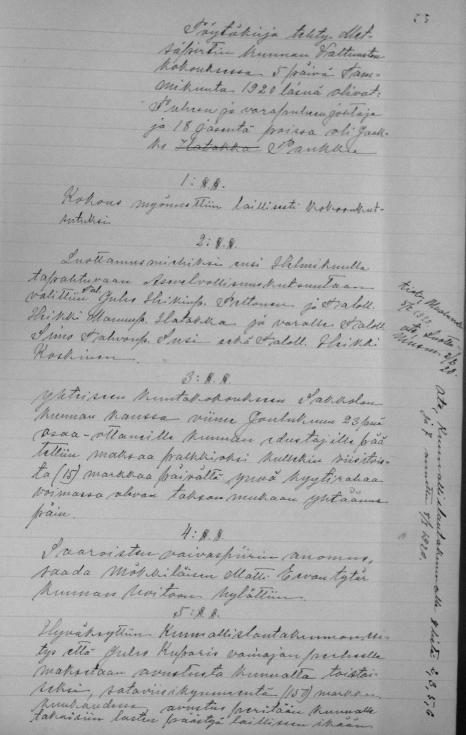 53
Pöytäkirja tehty Met-
säpirtin kunnan Valtuuston
kokouksessa 5 päivä Tam-
mikuuta 1920 läsnä olivat:
Puheen ja varapuheenjohtaja
ja 18 jäsentä poissa oli Jaak-
ko Hatakka Pankka
1: §.§.
Kokous myönnettiin laillisesti kokoonkut-
sutuksi
2: §.§.
Luottamusmiehiksi ensi Helmikuulla
tapahtuvaan Asevelvollisuuskutsuntaan
valittiin Tal. Juho Heikinp. Peltonen ja Taloll.
Heikki Mannup. Hatakka ja varalle Taloll.
Simo Susi sekä Taloll. Heikki
Koskinen.
3: §.§.
Yhteiseen kuntakokoukseen Sakkolan
kunnan kanssa viime Joulukuun 23 pnä
osaa-ottaneille kunnan edustajille pää
tettiin maksaa palkkioksi kullekin viisitois-
ta (15) markkaa päivältä ynnä kyytirahaa
voimassa olevan taksan mukaan yhtäänne
päin.
4: §.§.
Saaroisten vaivaspiirin anomus,
saada Mökkiläinen Matti tytär
kunnan hoitoon hylättiin.
5: §.§.
Hyväksyttiin Kunnallislautakunnan esi-
tys että Juho Kuparis vainajan perheelle
maksetaan avustusta kunnalta toistai
seksi, sataviisikymmentä (150) markkaa
kuukaudessa, avustus peritään kunnalle
takaisin lasten päästyä lailliseen ikään
ote Kunnallislautakunnalle §§istä 2, 3, 5, 6
ja 7 annettu 8/1 1920.